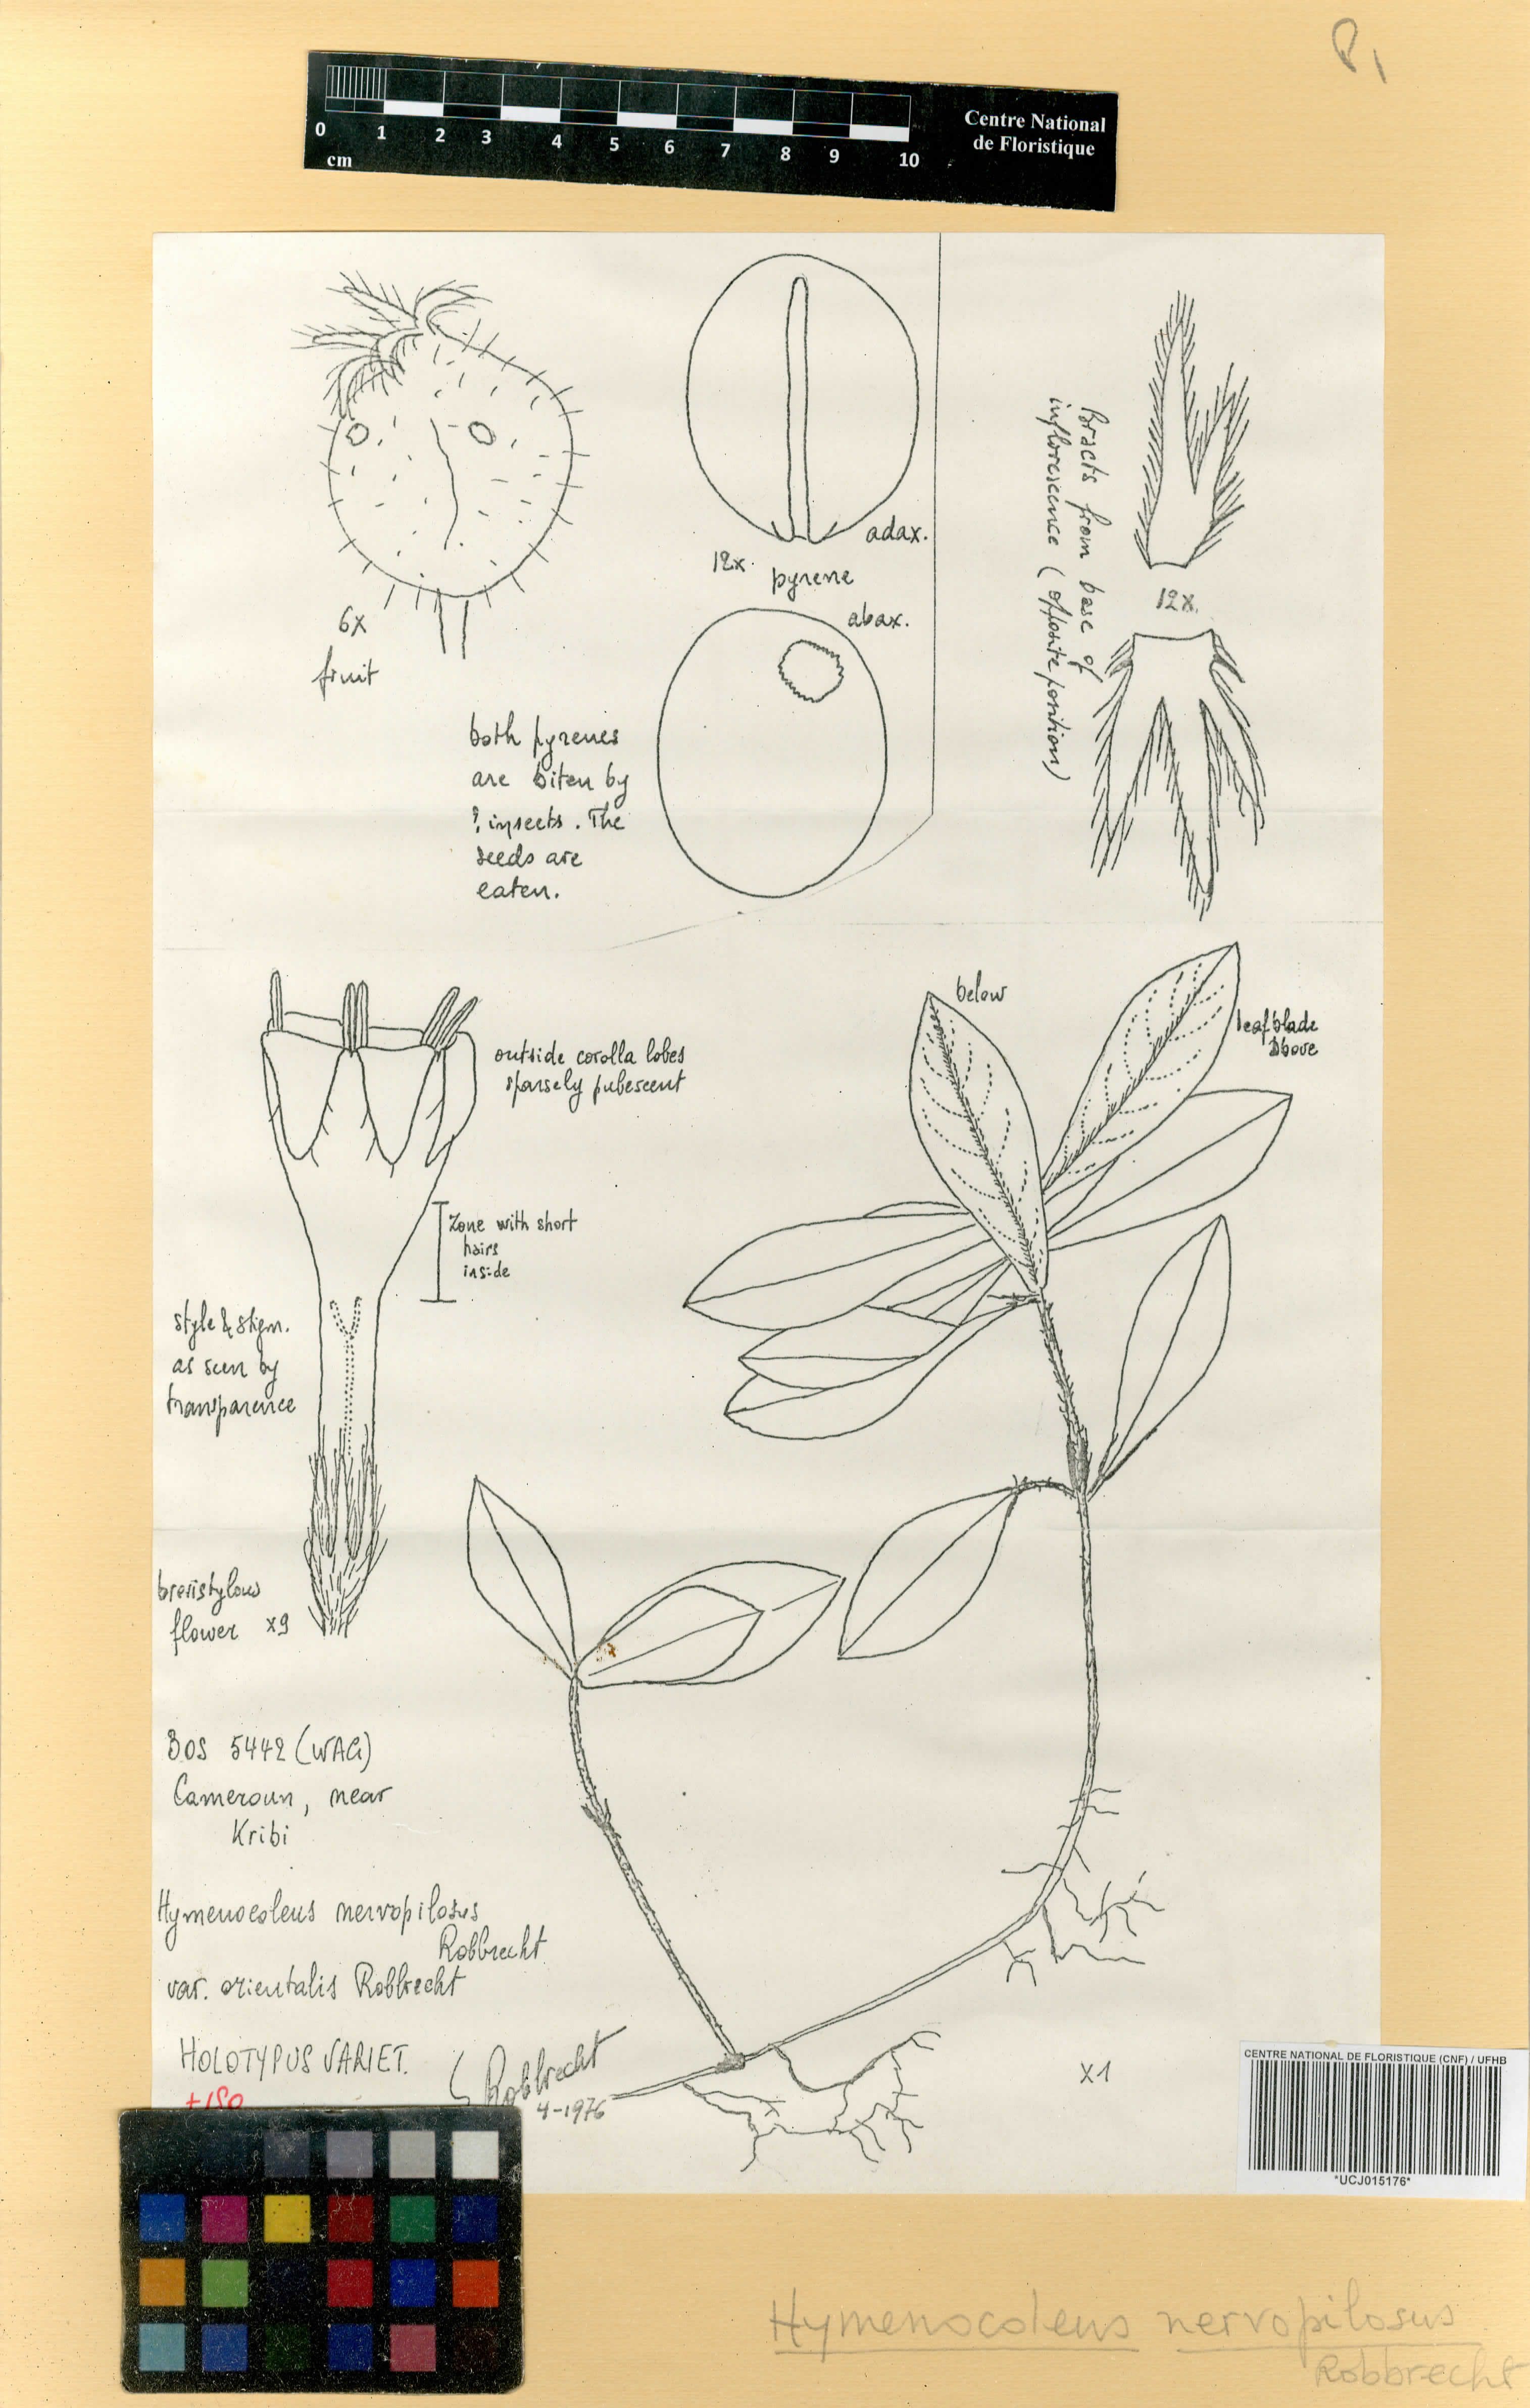 0 1 2 3 4 5 6 7 8 9 10
cm
Centre National
de Floristique
6x
fruit
adax.
12x.
pyrene
abax.
Bracts from base of
inflorescence (opposite position)
12x.
both pyrenes
are biten by
? insects. The
seeds are
eaten.
outside corolla lobes
sparsely pubescent
Zone with short
hairs
inside
style & stigm.
as seen by
transparence
brevistylous
flower x9
below
leafblade
above
BOS 5442 (WAG)
Cameroun, near
Kribi
Hymenocoleus nervopilosus
Robbrecht
var. orientalis Robbrecht
HOLOTYPUS VARIET.
+ ISO
Robbrecht
4-1976
x1
CENTRE NATIONAL DE FLORISTIQUE (CNF) / UFHB
*UCJ015176*
Hymenocoleus nervopilosus
Robbrecht